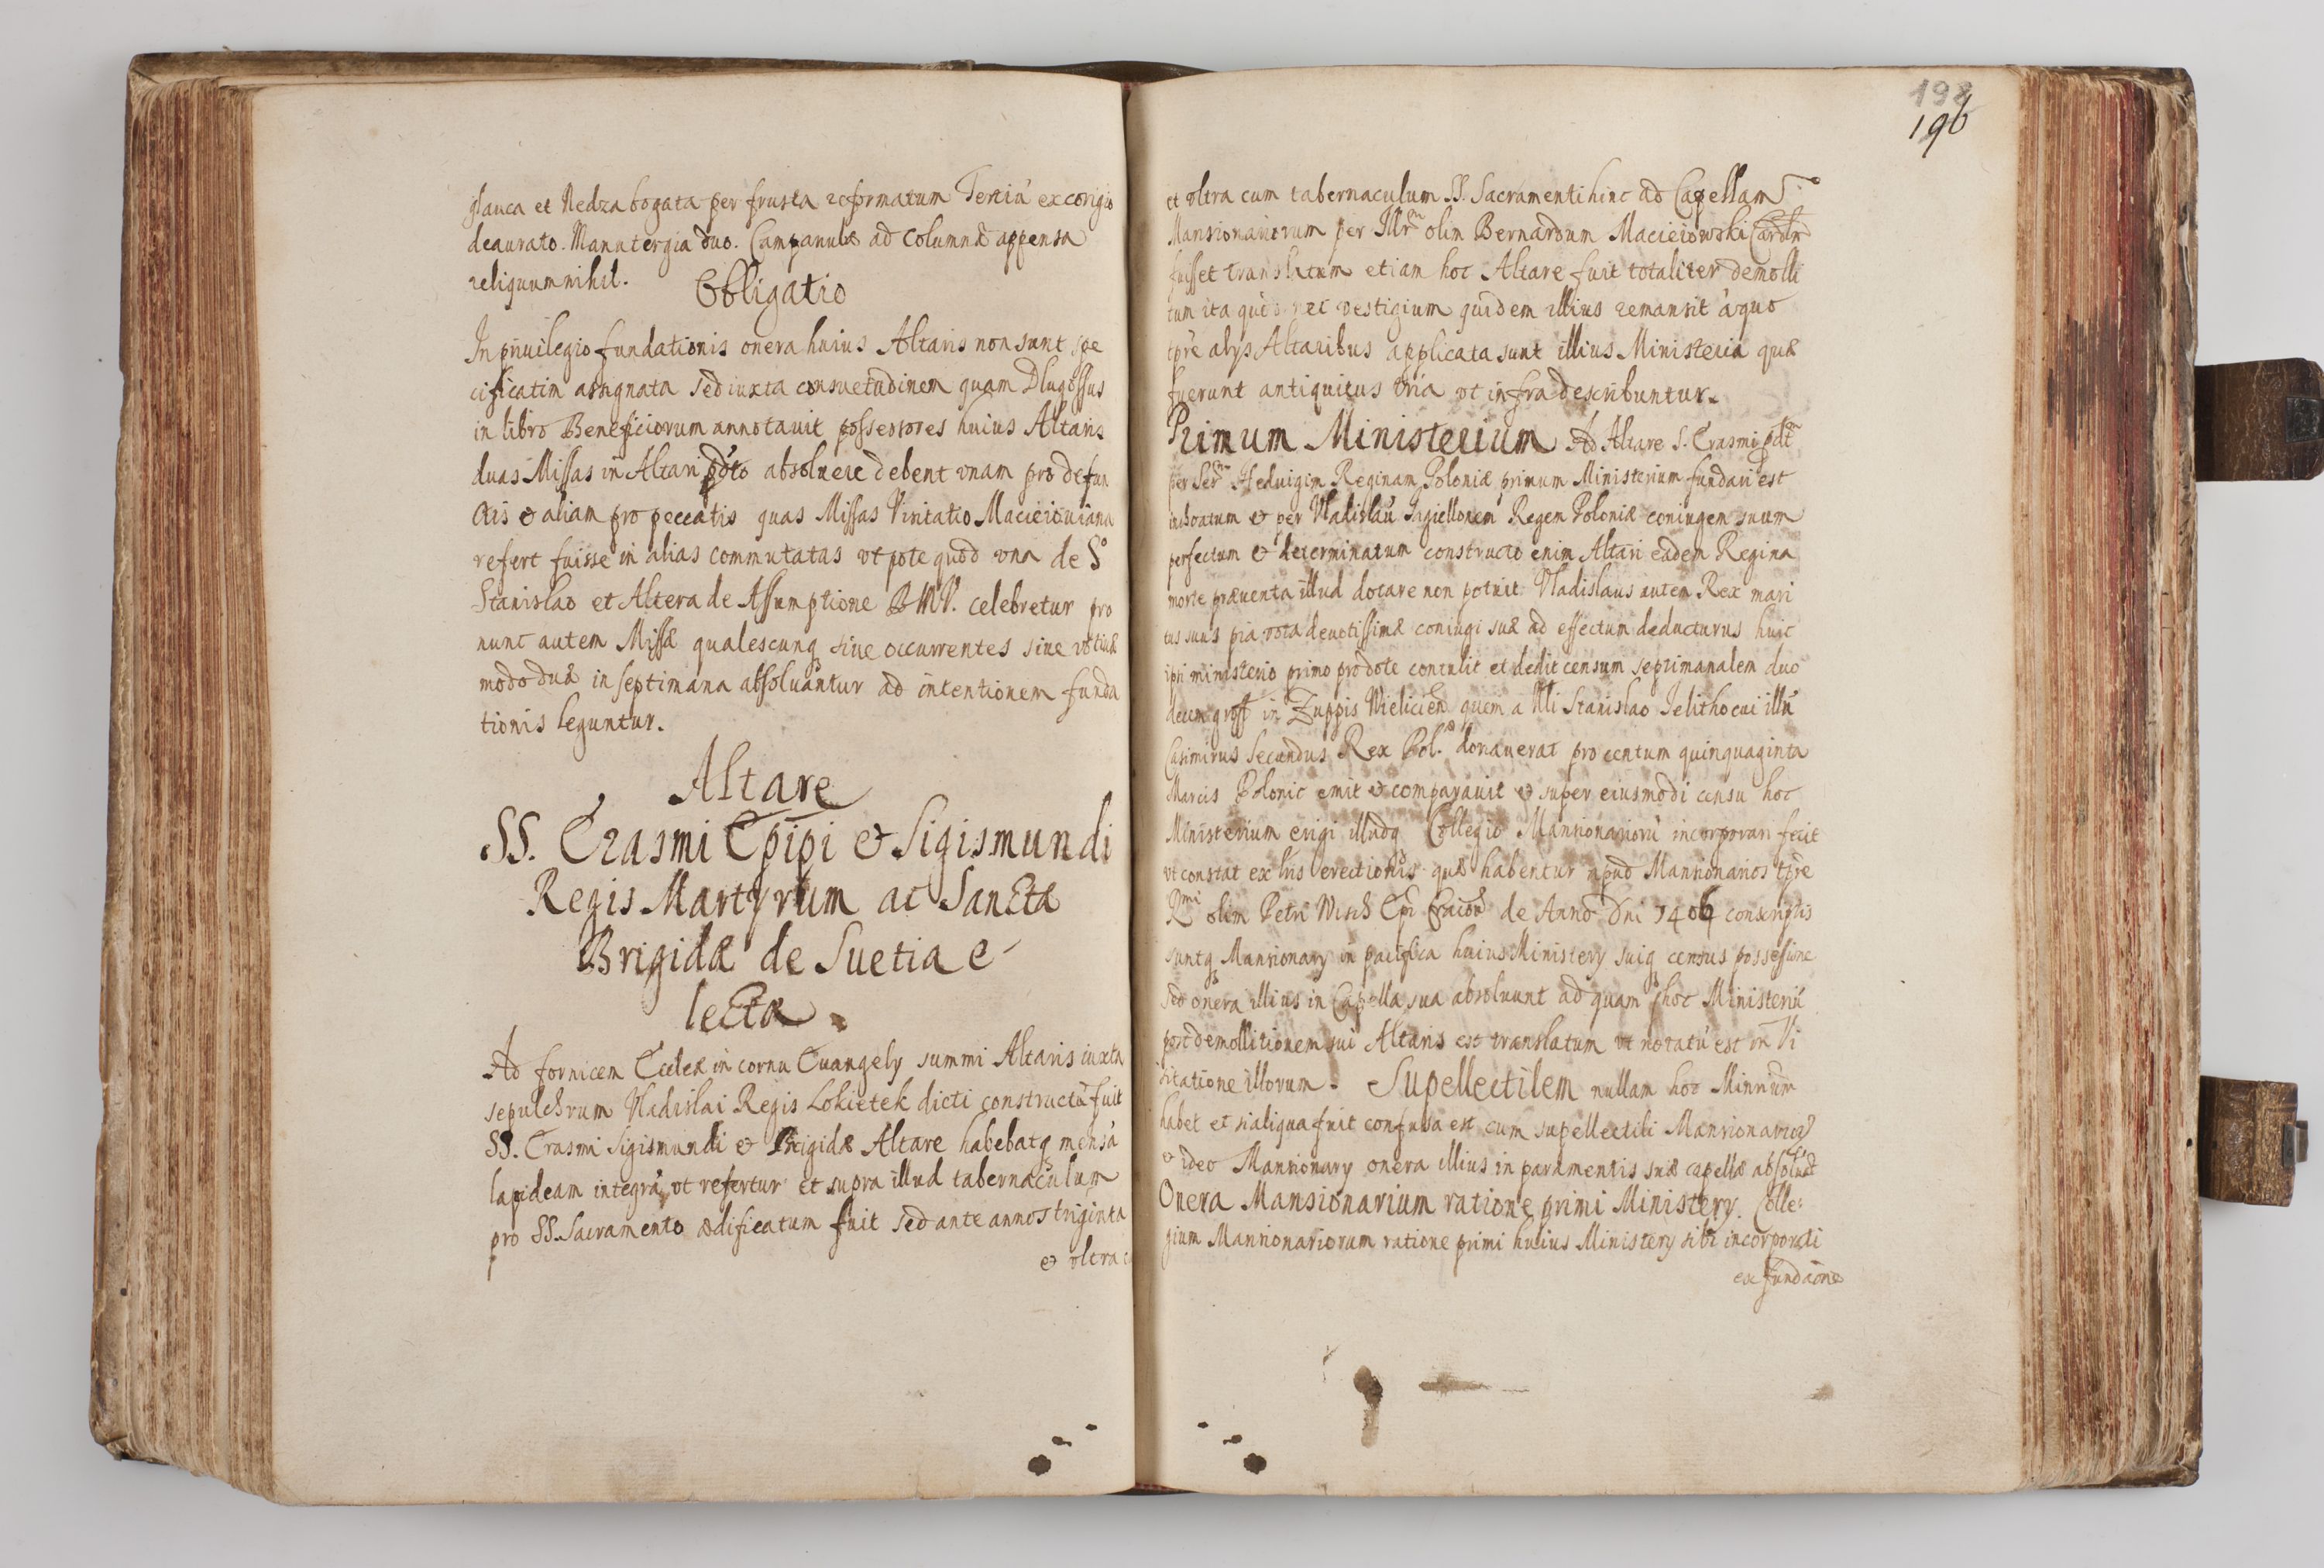 glauca et Nedza bogata per frusta reformatum Tertiũ ex corigio
deaurato. Manutergia duo. Campanulæ ad columnã appensa
reliquum nihil.
Obligatio
In priuilegio fundationis onera huius Altaris non sunt spe
cificatim assignata sed iuxta consuetudinem quam Dlugossus
in libro Beneficiorum annotauit possessores huius Altaris
duas Missas in Altari pdto absoluere debent vnam pro defun
ctis & aliam pro peccatis quas Missas Visitatio Macieiouiana
refert fuisse in alias commutatas vt pote quod vna de So
Stanislao et Altera de Assumptione B M V. celebretur pro
nunc autem Missæ qualescunq siue occurrentes siue votiuæ
modo duæ in septimana absoluantur ad intentionem funda
tionis leguntur.
Altare
SS. Erasmi Epipi & Sigismundi
Regis Martyrum ac Sanctæ
Brigidæ de Suetia e-
lectæ.
Ad fornicem Eccleæ in cornu Euangely summi Altaris iuxta
sepulchrum Vladislai Regis Lokietek dicti constructũ fuit
SS. Erasmi Sigismundi & Brigidæ Altare habebatq mensã
lapideam integrã vt refertur et supra illud tabernaculum
pro SS. Sacramento ædificatum fuit sed ante annos triginta
& vltra
198
196
et vltra cum tabernaculum SS. Sacramenti hinc ad Capellam
Mansionariorum per Illrm olim Bernardum Macieiowski Cardin
fuisset translatum etiam hoc Altare fuit totaliter demolli
tum ita quod nec vestigium quidem illius remansit à quo
tpre alys Altaribus applicata sunt illius Ministeria quæ
fuerunt antiquitus tria vt infra describuntur.
Primum Ministerium Ad Altare S. Erasmi pdtm
per Serm Heduigim Reginam Poloniæ primum Ministerium fundari est
inchoatum & per Vladislaũ Jagiellonem Regem Poloniæ coniugem suum
perfectum & determinatum constructo enim Altari eadem Regina
morte præuenta illud dotare non potuit Vladislaus autem Rex mari
tus suus pia vota deuotissimæ coniugi suæ ad effectum deducturus huic
ipsi ministerio primo pro dote contulit et dedit censum septimanalem duo
decim gross in Zuppis Vieliciens quem a Stanislao Jelitho cui illũ
Casimirus Secundus Rex Pol. donauerat pro centum quinquaginta
Marcis Polonic emit & comparauit & super eiusmodi censu hoc
Ministerium erigi illudq Collegio Mansionariorũ incorporari fecit
vt constat ex lris erectionis quæ habentur apud Mansionarios tpre
Rmi olim Petri Wisch Epi Cracou de Anno Dni 1406 conscriptis
suntq Mansionary in pacifica huius Ministery suiq census possesione
sed onera illius in Capella sua absoluunt ad quam hoc Ministeriũ
post demollitionem sui Altaris est translatum vt notatũ est in Vi
sitatione illorum. Supellectilem nullam hoc Minrium
habet et si aliqua fuit confusa est cum supellectili Mansionarior
& ideo Mansionary onera illius in paramentis suæ capellæ absoluũt
Onera Mansionarium ratione primi Ministery. Colle:
gium Mansionariorum ratione primi huius Ministery sibi incorporati
ex fundaone